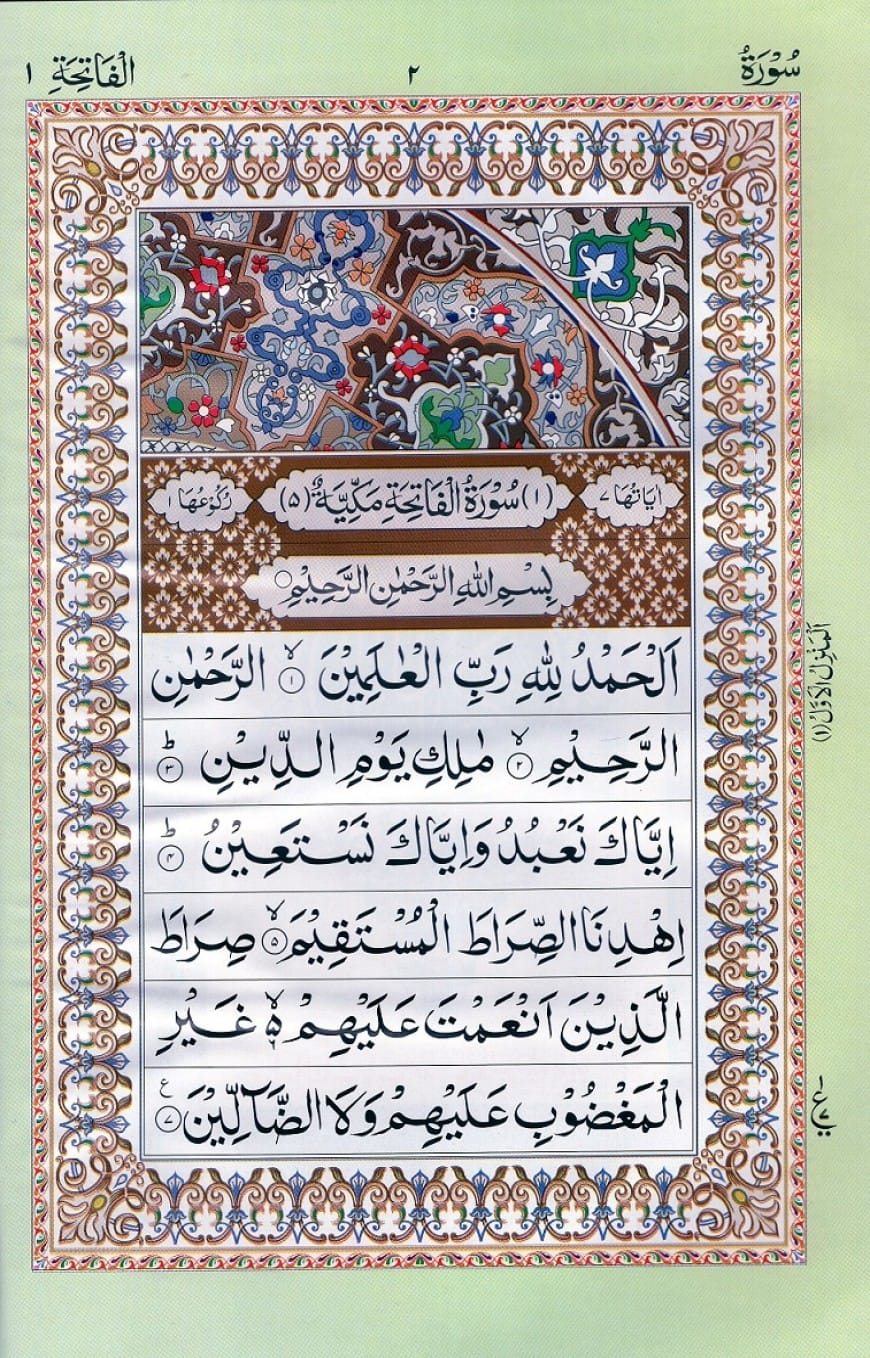 سُوْرَةُ ٢ الْفَاتِحَةِ ١
اٰيَاتُهَا ٧ (١) سُوْرَةُ الْفَاتِحَةِ مَكِّيَّةٌ (٥) رُكُوْعُهَا ١
بِسْمِ اللّٰهِ الرَّحْمٰنِ الرَّحِيْمِ
اَلْحَمْدُ لِلّٰهِ رَبِّ الْعٰلَمِيْنَ ۙ﴿١﴾ الرَّحْمٰنِ
الرَّحِيْمِ ۙ﴿٢﴾ مٰلِكِ يَوْمِ الدِّيْنِ ؕ﴿٣﴾
اِيَّاكَ نَعْبُدُ وَاِيَّاكَ نَسْتَعِيْنُ ؕ﴿٤﴾
اِهْدِنَا الصِّرَاطَ الْمُسْتَقِيْمَ ۙ﴿٥﴾ صِرَاطَ
الَّذِيْنَ اَنْعَمْتَ عَلَيْهِمْ ۙ۬ غَيْرِ
الْمَغْضُوْبِ عَلَيْهِمْ وَلَا الضَّآلِّيْنَ ﴿٧﴾ ع
اَلْمَنْزِلُ الْاَوَّلُ (١)
١ ع ٧